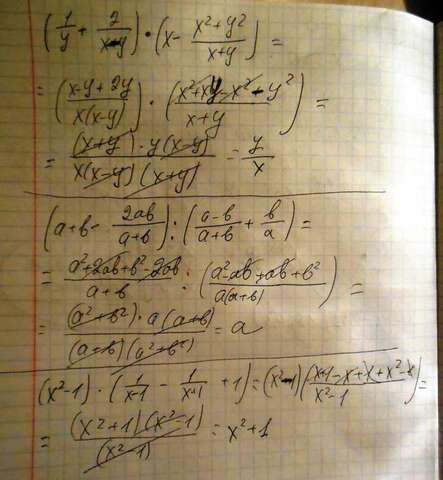 (1/y + 2/(x-y)) · (x - (x²+y²)/(x+y)) =
= ((x-y+2y)/(x(x-y))) · ((x²+xy-x²-y²)/(x+y)) =
= ((x+y) · y(x-y))/(x(x-y)(x+y)) = y/x
(a+b - 2ab/(a+b)) : ((a-b)/(a+b) + b/a) =
= (a²+2ab+b²-2ab)/(a+b) : ((a²-ab+ab+b²)/(a(a+b))) =
= ((a²+b²) · a(a+b))/((a+b)(a²+b²)) = a
(x²-1) · (1/(x-1) - 1/(x+1) + 1) = (x²-1)((x+1-x+1+x²-1)/(x²-1)) =
= ((x²+1)(x²-1))/(x²-1) = x²+1